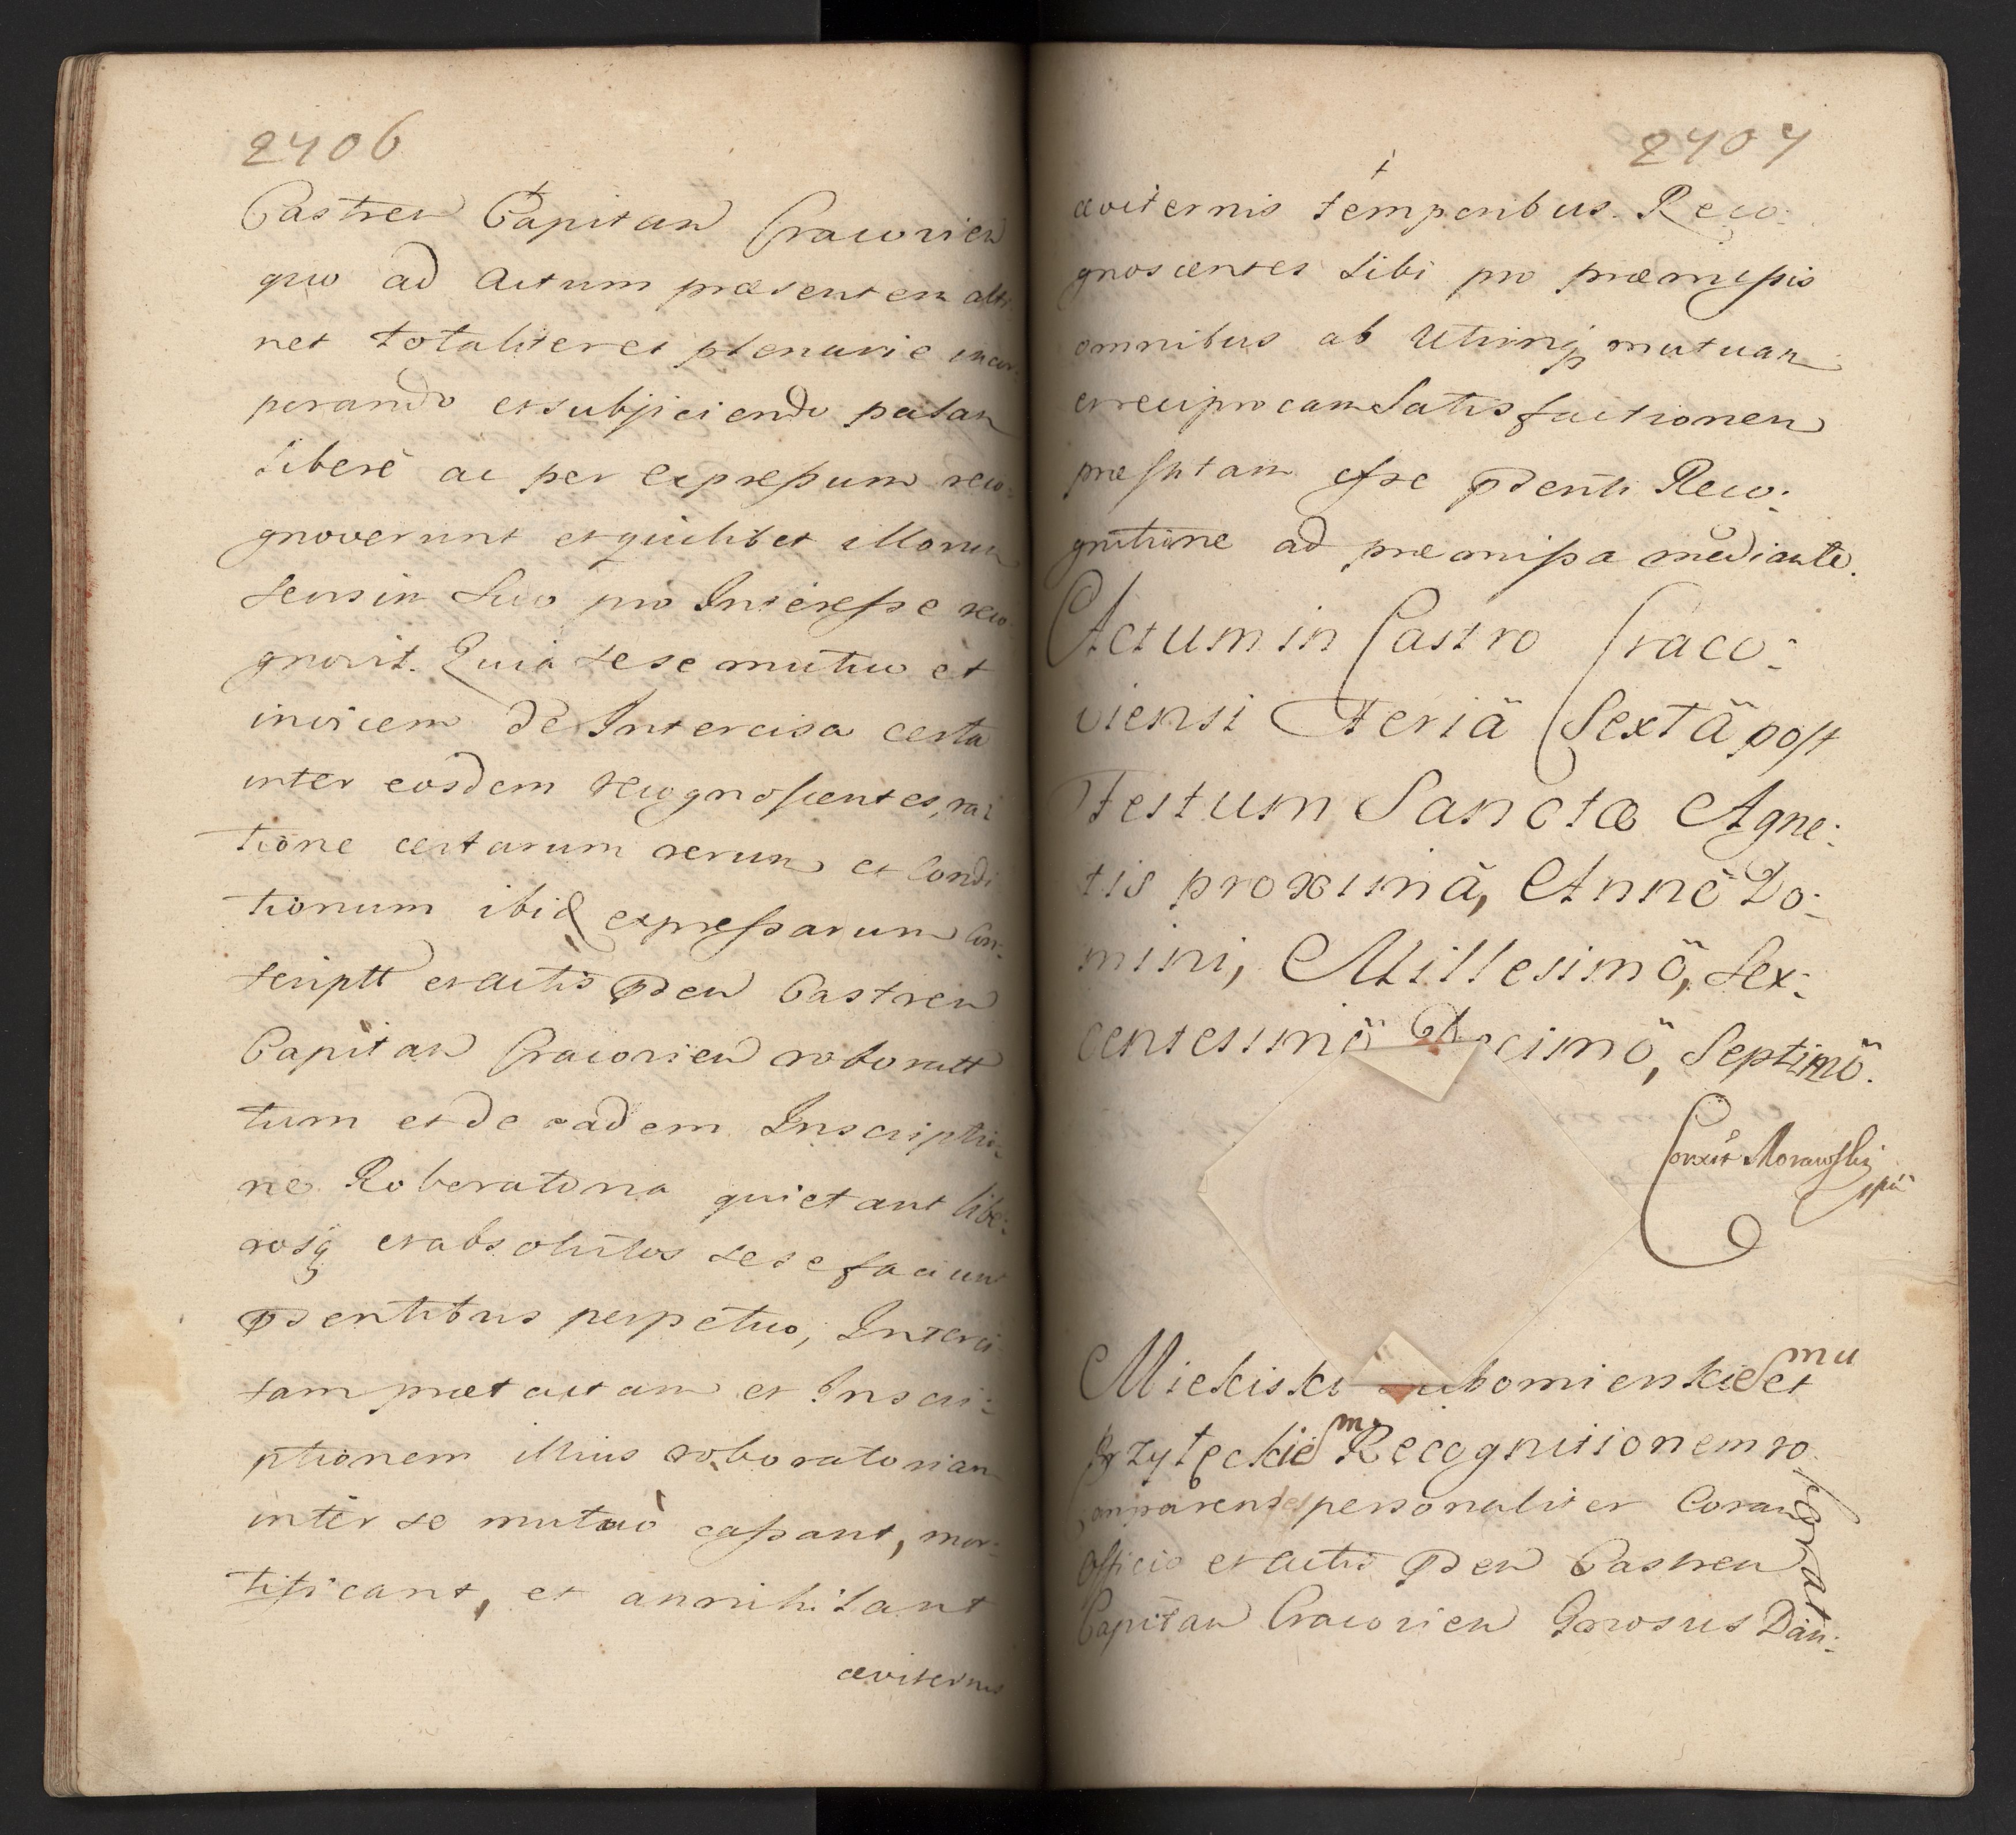 2406
Castren Capitan Cracovien
quo ad Actum præsentem atti
net totaliter et plenarie incor
porando et subjiciendo palam
libere ac per expressum reco:
gnoverunt et quilibet illorum
seu sin suo pro Interesse reco
gnovit. Quia sese mutuo et
invicem de Intercisa certa
inter eosdem Recognoscentes, ra
tione certarum rerum et Condi
tionum ibid expressarum Con:
scriptt et actis pden Castren
Capitan Cracovien roboratt
tum et de eadem Inscriptio
ne Roboratoria quietant libe:
rosq et absolutos sese faciunt
psentibus perpetuo, Interci
sam prætactam et Inscri:
ptionem illius roboratoriam
inter se mutuo cassant, mor:
tificant, et annihilant
æviternis
2407
æviternis temporibus. Reco:
gnoscentes sibi pro præmissis
omnibus ab utrinq mutuam
et reciprocam Satisfactionem
præstitam esse psenti Reco:
gnitione ad præmissa mediante.
Actum in Castro Craco:
viensi Feriä Sextä post
Festum Sanctæ Agne:
tis proximä, Annö Do:
mini, Millesimö, Sex:
centesimö Decimö, Septimö.
Correxit Morawski
mpr
Miekiski Lubomienskie mu et
Przyteckie mu Recognitionem ro
borat
Comparentes personaliter Coram
Officio et actis pden Castren
Capitan Cracovien Grosus Dan: